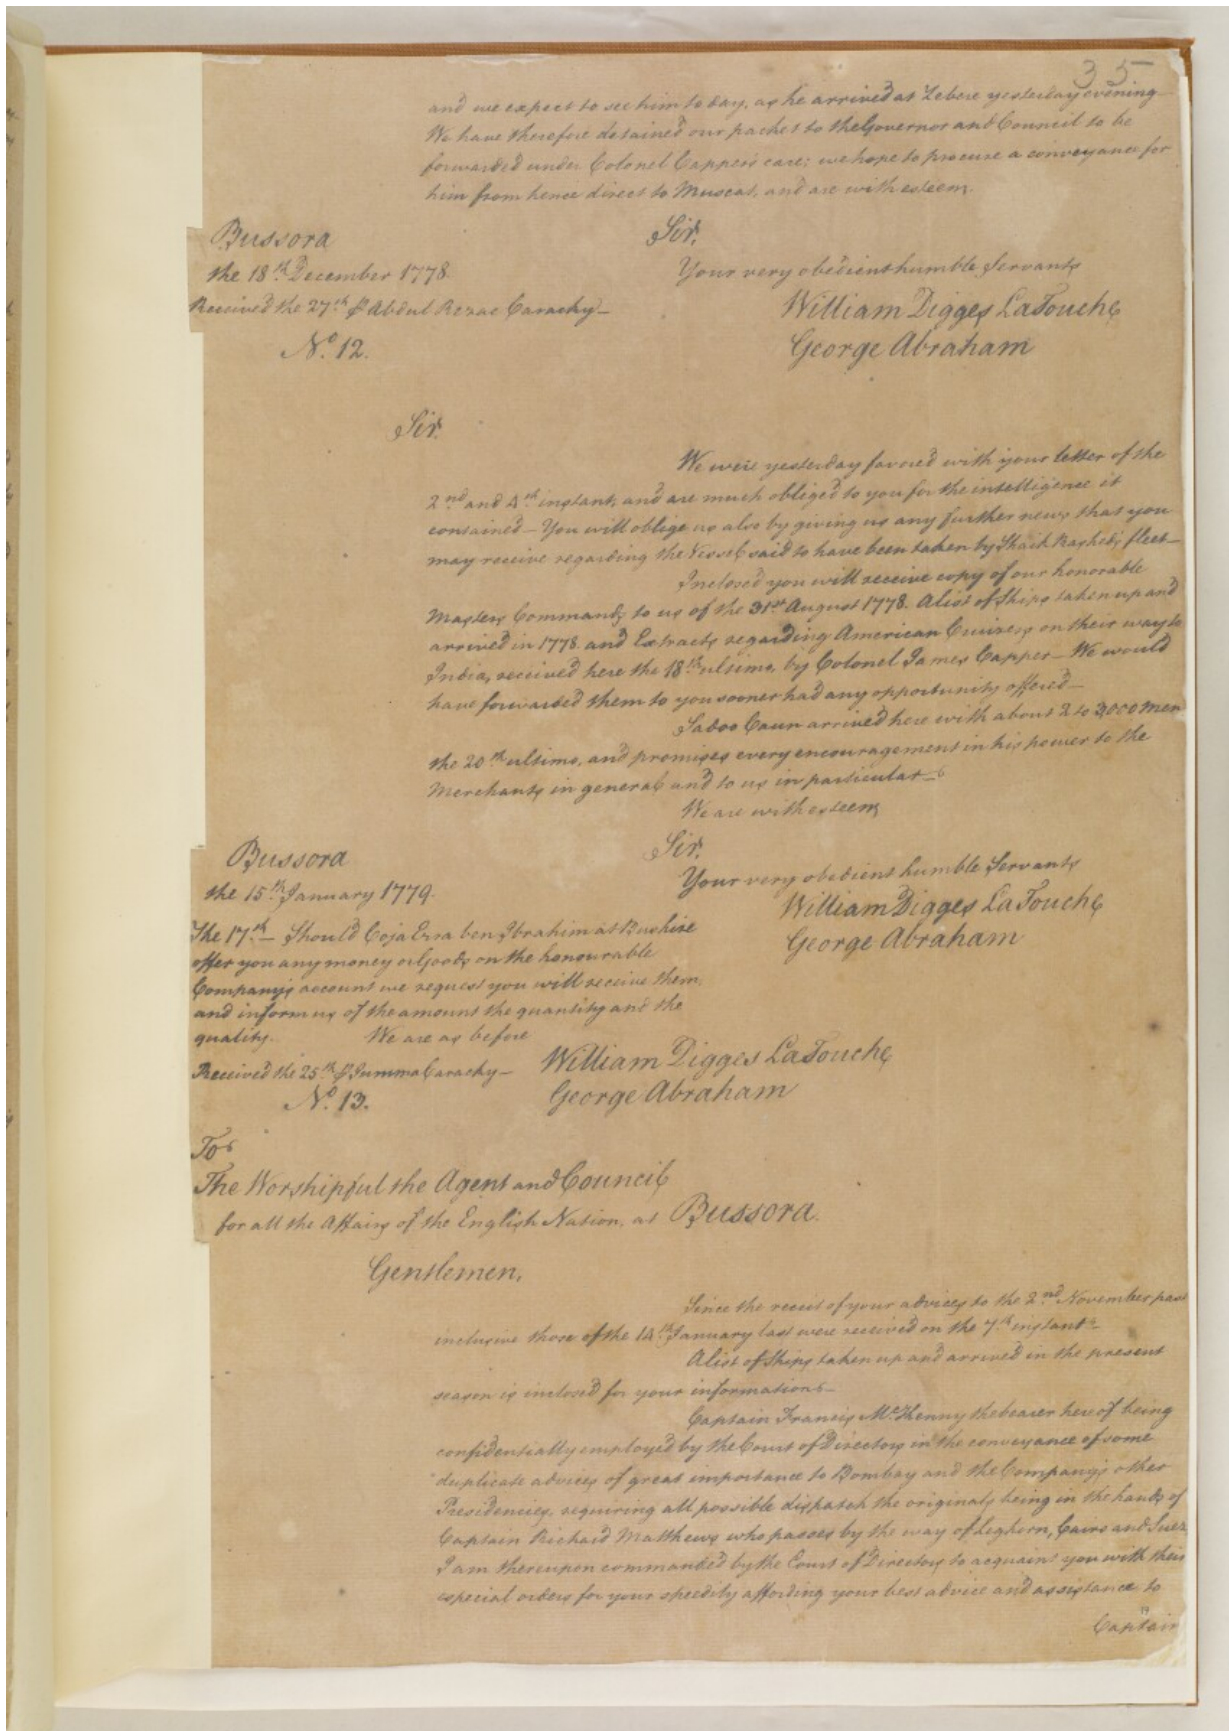 35
and we expect to see him to day, as he arrived at Zebere yesterday evening
We have therefore detained our packet to the Governor and Council to be
forwarded under Colonel Capper's care; we hope to procure a conveyance for
him from hence direct to Muscat, and are with esteem.
Sir,
Bussora
the 18th December 1778.
Your very obedient humble Servants
Received the 27th P Abdul Rezac Carachy—
William Digges LaTouche
No. 12.
George Abraham
Sir
We were yesterday favored with your letter of the
2nd and 4th instant, and are much obliged to you for the intelligence it
contained — You will oblige us also by giving us any further news that you
may receive regarding the Vessel said to have been taken by Shaik Rashed's fleet—
Inclosed you will receive copy of our honorable
Masters Commands to us of the 31st August 1778. A list of Ships taken up and
arrived in 1778 and Extracts regarding American Cruizers on their way to
India, received here the 18th ultimo, by Colonel James Capper — We would
have forwarded them to you sooner had any opportunity offered—
Sadoo Caun arrived here with about 2 to 3,000 Men
the 20th ultimo, and promises every encouragement in his power to the
Merchants in general and to us in particular—
We are with esteem
Sir,
Bussora
the 15th January 1779.
Your very obedient humble Servants
William Digges LaTouche
George Abraham
The 17th — Should Coja Essa ben Ibrahim at Bushire
offer you any money or Goods on the honourable
Company's account we request you will receive them,
and inform us of the amount the quantity and the
quality. We are as before
Received the 25th P Jumma Carachy —
William Digges LaTouche
George Abraham
No. 13.
To
The Worshipful the Agent and Council
for all the Affairs of the English Nation, at Bussora.
Gentlemen,
Since the receit of your advices to the 2nd November past
inclusive those of the 14th January last were received on the 7th instant—
A list of Ships taken up and arrived in the present
season is inclosed for your information—
Captain Francis McKenny the bearer hereof being
confidentially employed by the Court of Directors in the conveyance of some
duplicate advices of great importance to Bombay and the Company's other
Presidencies, requiring all possible dispatch the originals being in the hands of
Captain Richard Matthews who passes by the way of Leghorn, Cairo and Suez,
I am thereupon commanded by the Court of Directors to acquaint you with their
especial orders for your speedily affording your best advice and assistance to
Captain